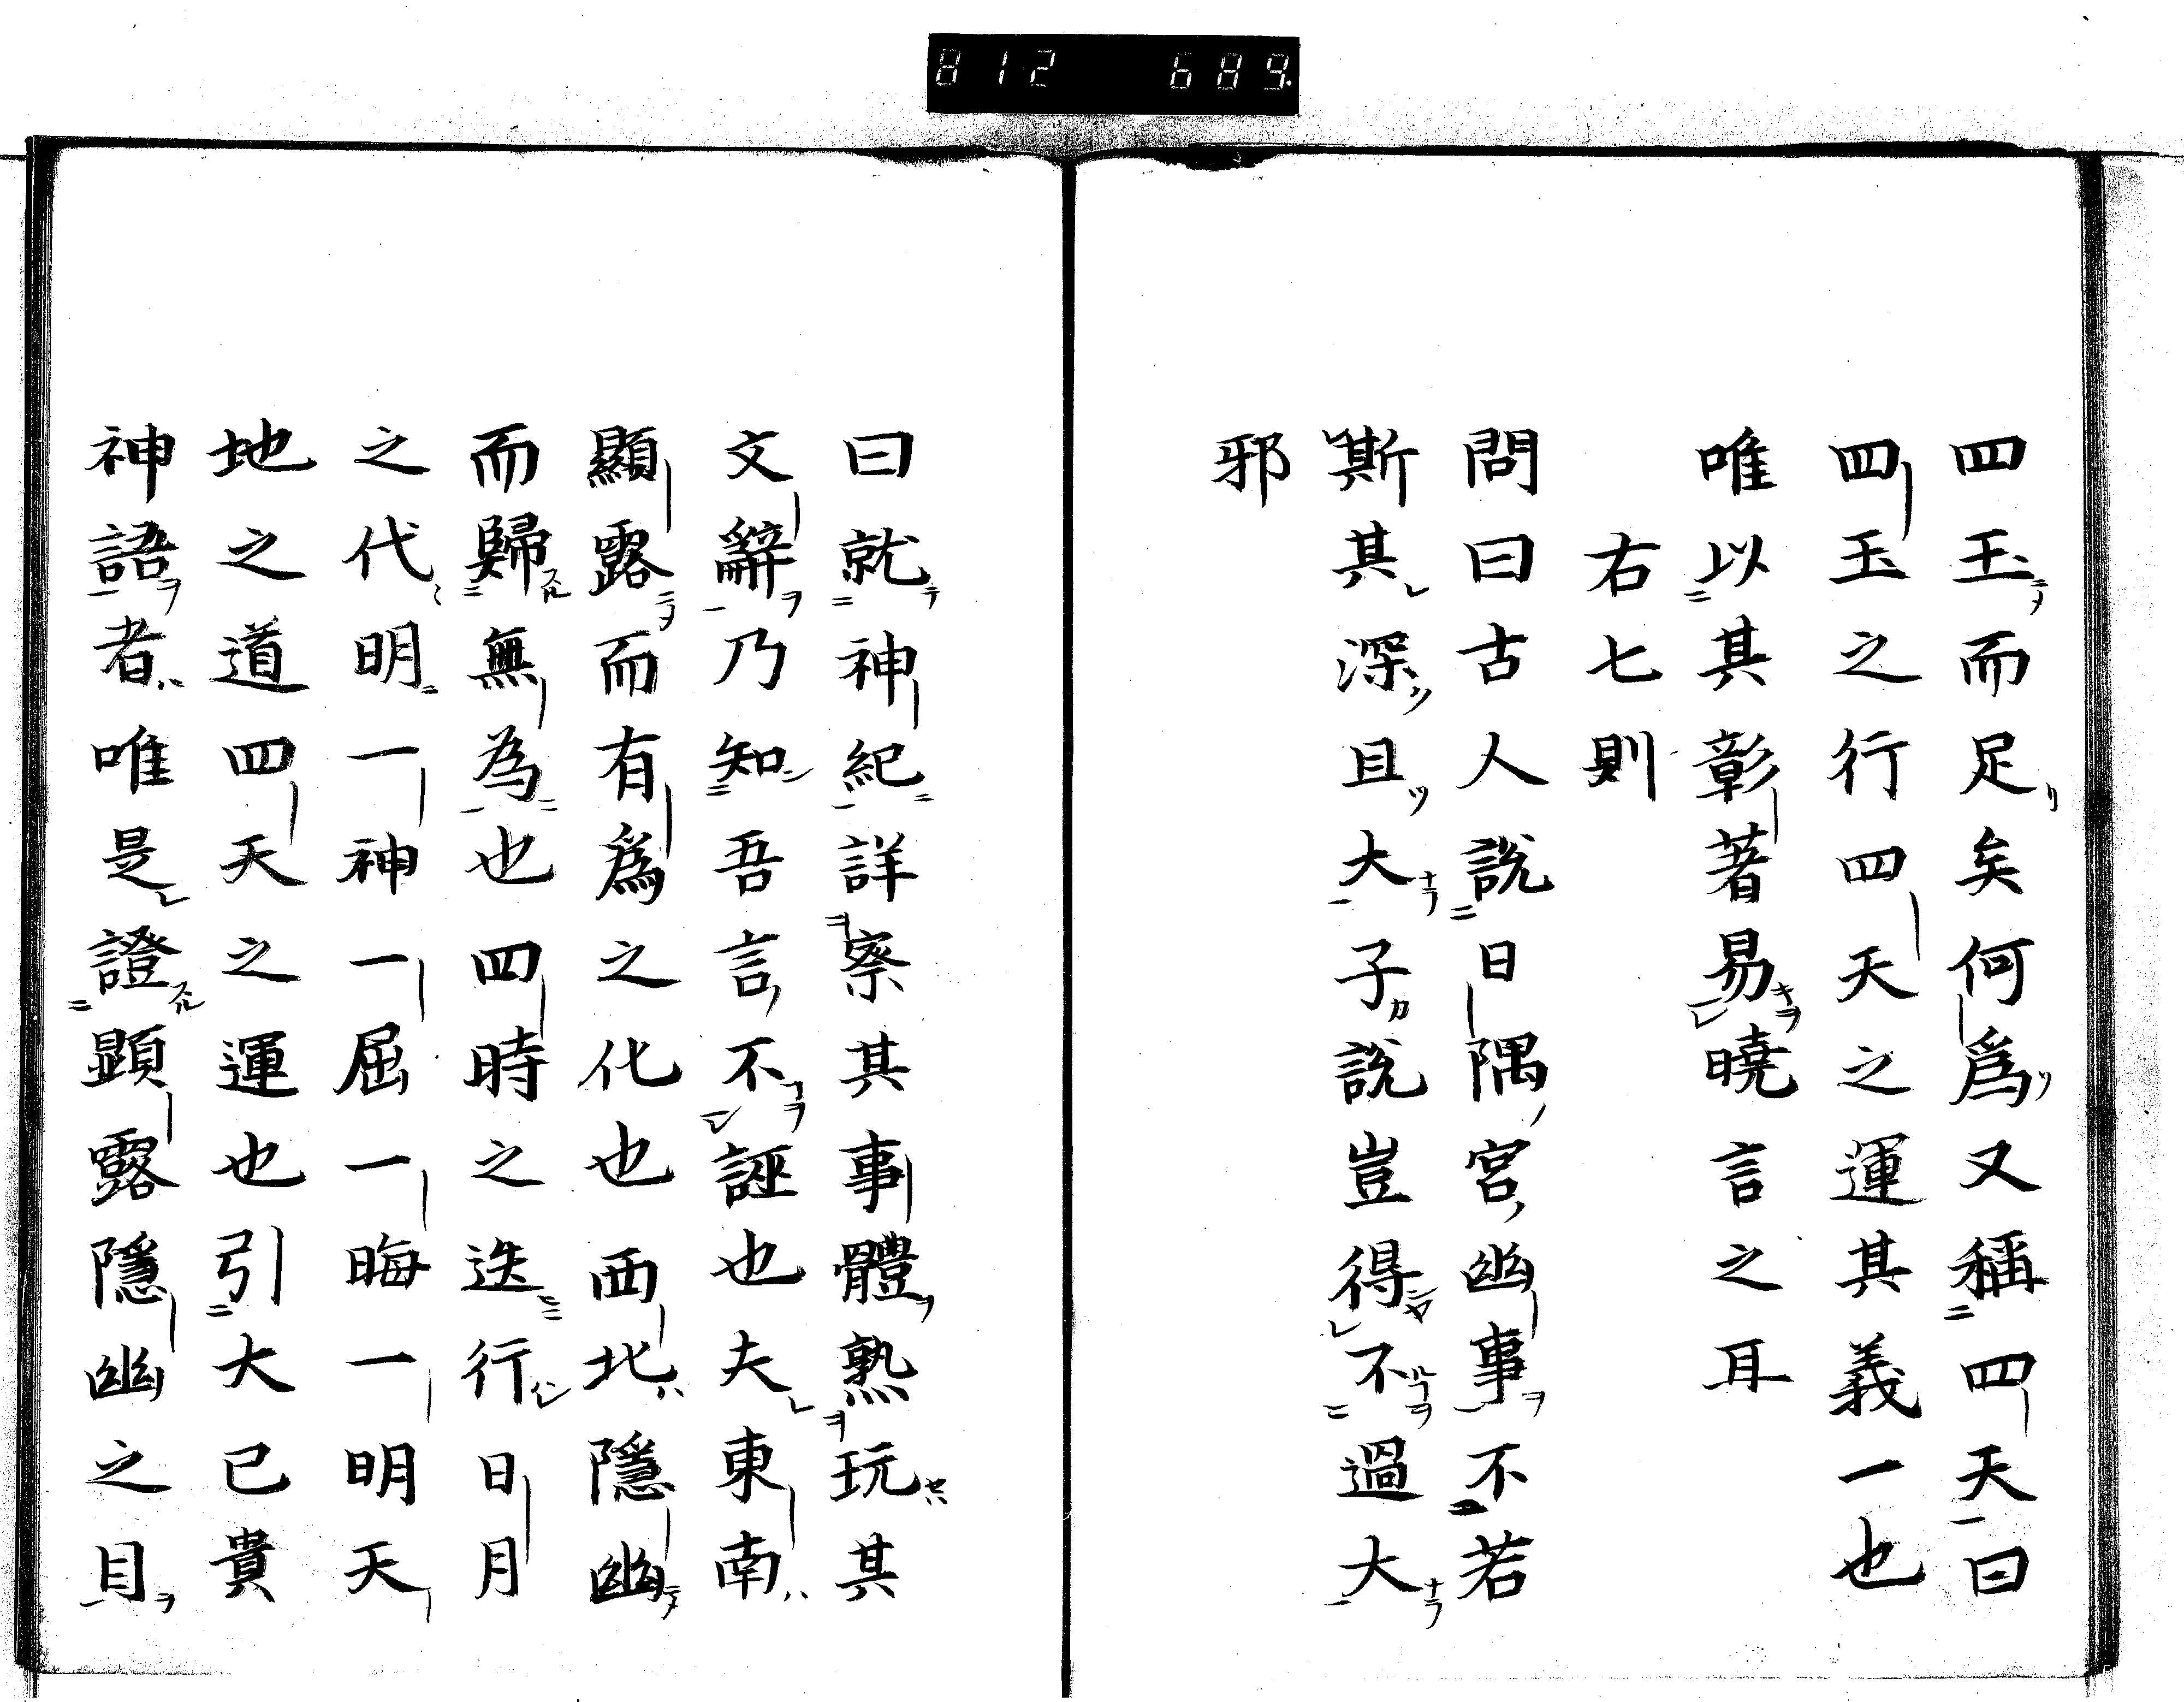 812 689.
四玉而足矣何爲又稱四天曰
四玉之行四天之運其義一也
唯以其彰著易曉言之耳
右七則
問曰古人說日隅宮幽事不若
斯其深且大子說豈得不過大
邪
曰就神紀詳察其事體熟玩其
文辭乃知吾言不誣也夫東南
顯露而有爲之化也西北隱幽
而歸無為也四時之迭行日月
之代明一神一屈一晦一明天
地之道四天之運也引大已貴
神語者唯是證顕露隱幽之目